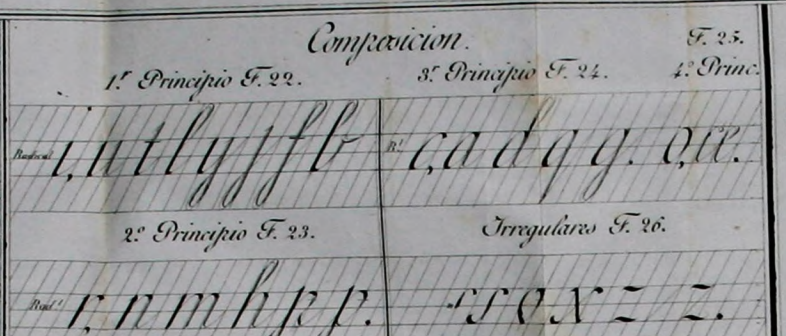 Composicion.
F. 25.
1.r Principio F. 22.
3.r Principio F. 24.
4.o Princ.
Radical i, u t l y j f b
R.l c, a d q g. o, e.
2.o Principio F. 23.
Irregulares F. 26.
Rad.l r, n m h p p.
s x z z.